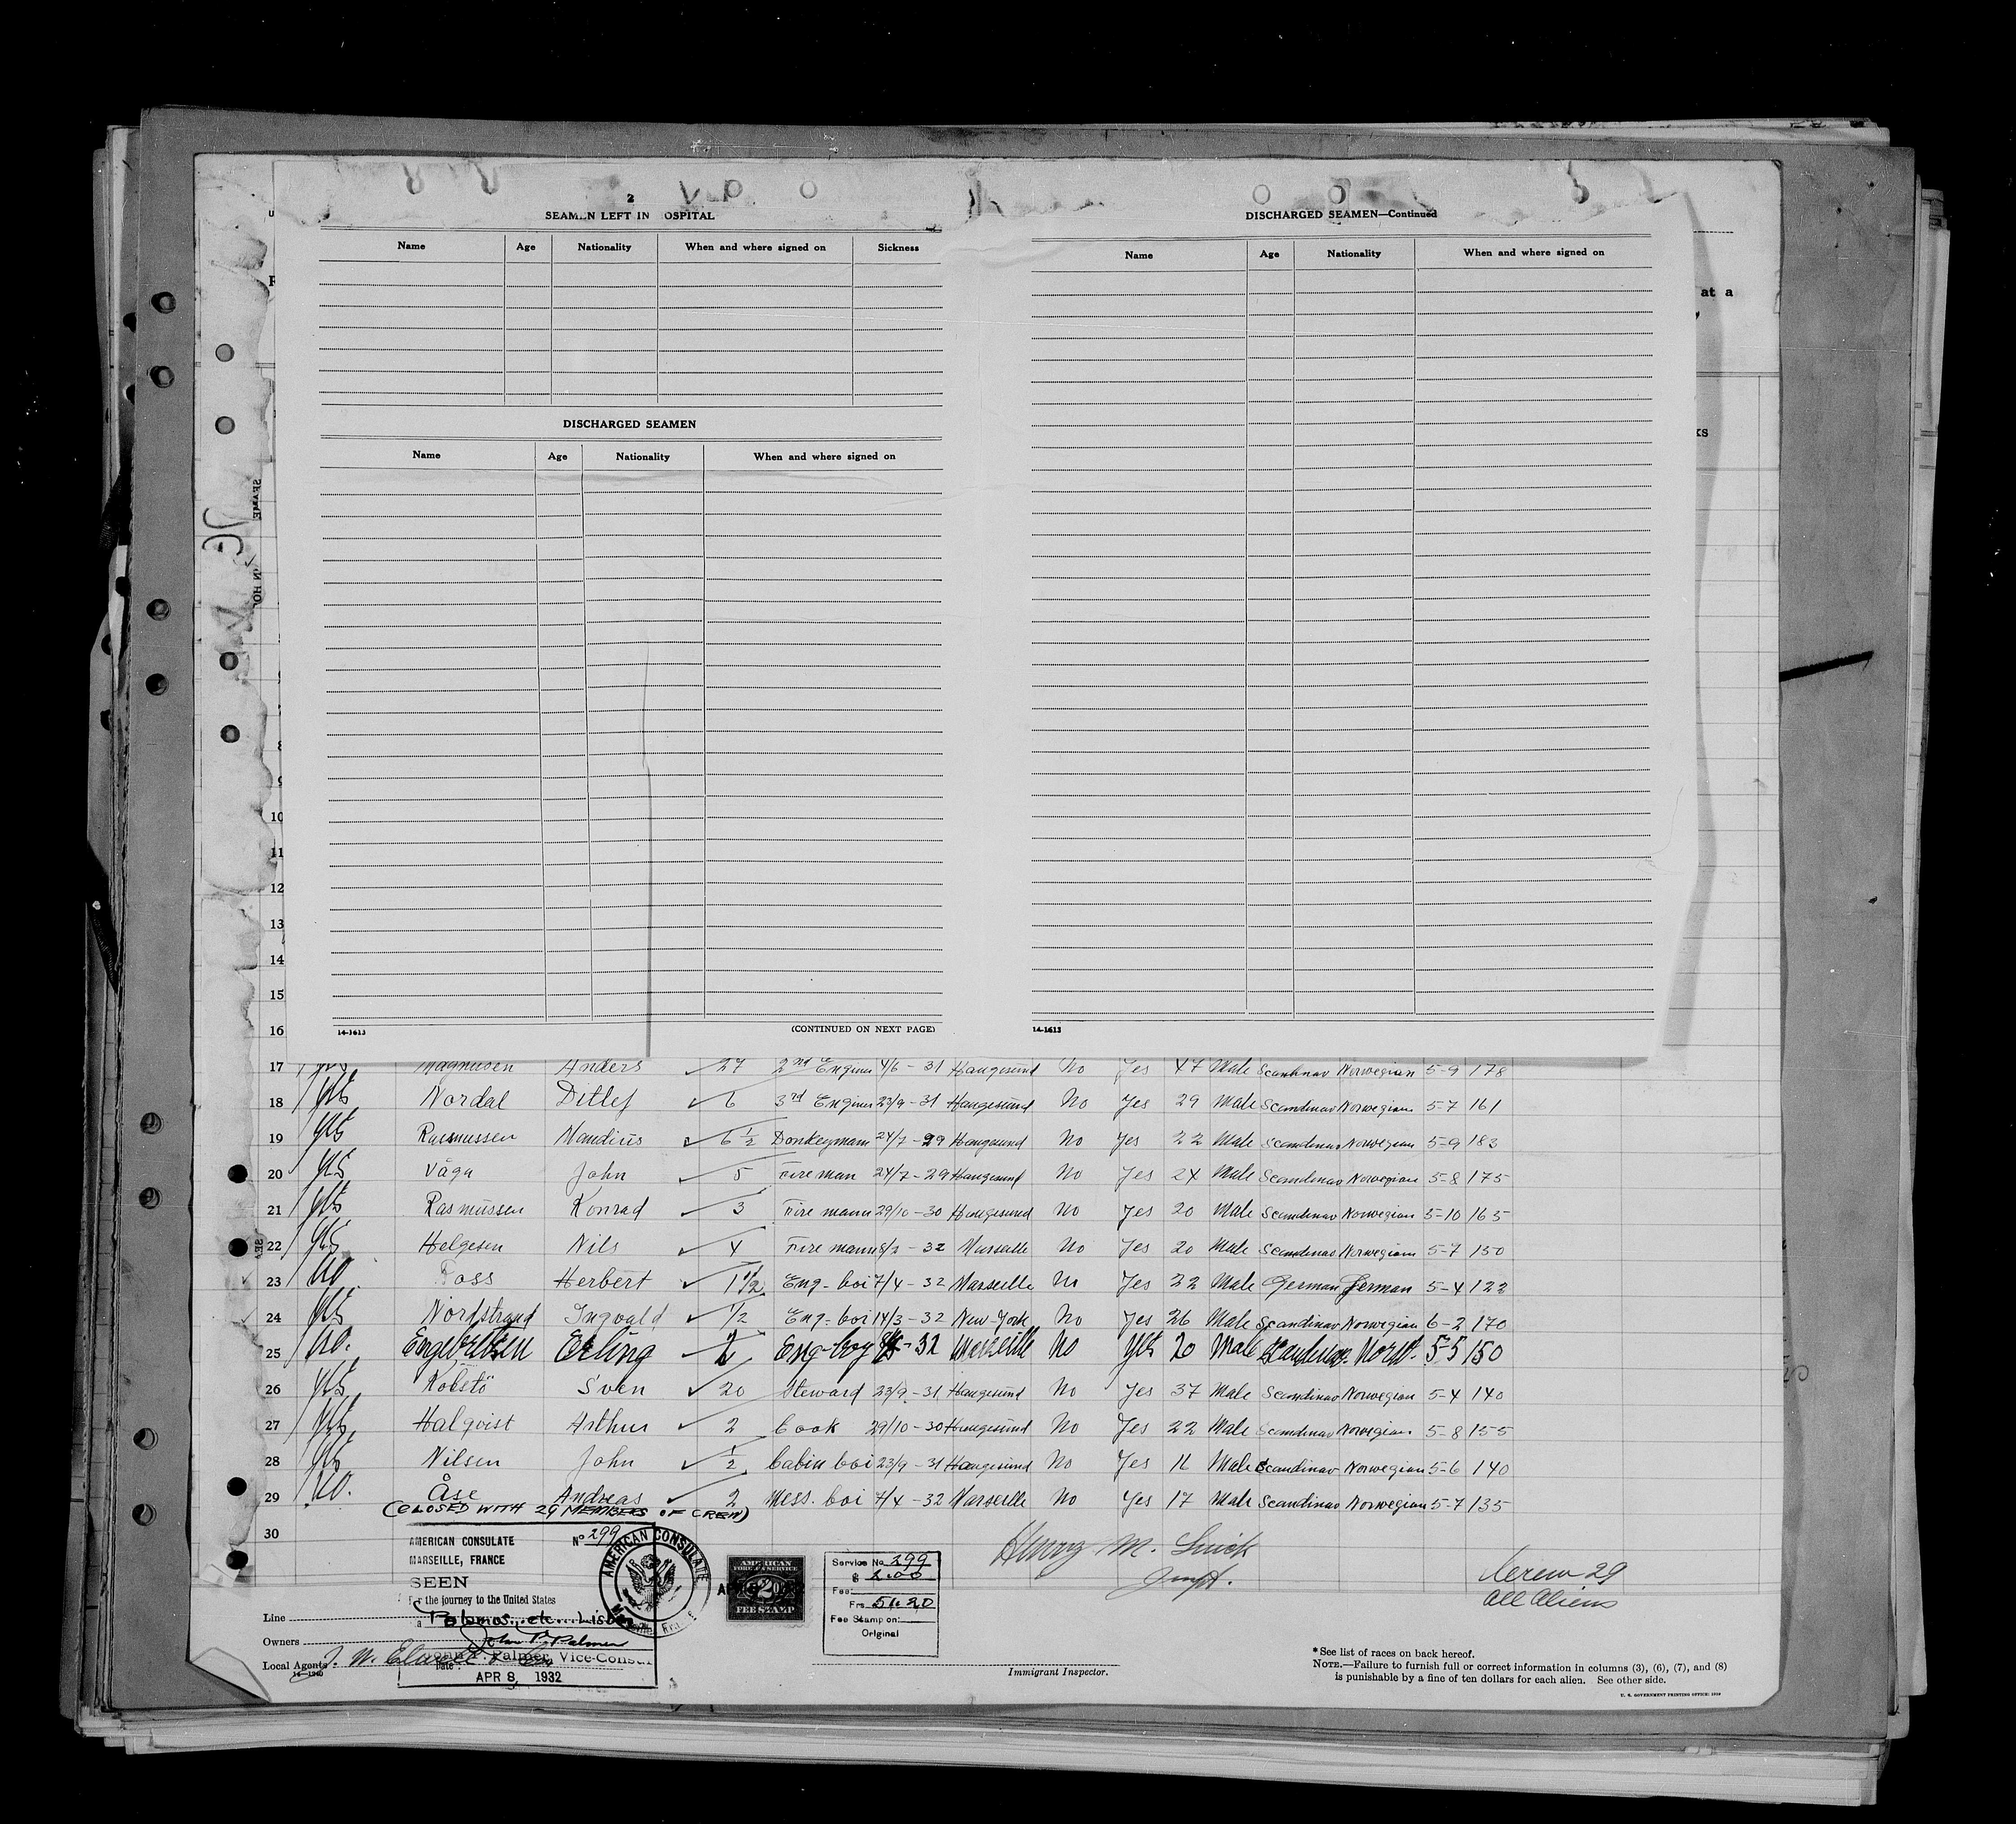 2
SEAMEN LEFT IN HOSPITAL
Name Age Nationality When and where signed on Sickness
DISCHARGED SEAMEN
Name Age Nationality When and where signed on
14-1613 (CONTINUED ON NEXT PAGE)
DISCHARGED SEAMEN—Continued
Name Age Nationality When and where signed on
14-1613
at a
KS
10
11
12
13
14
15
16
17 yes Magnusen Anders ✓ 27 2nd Engineer 4/6-31 Haugesund No Yes 47 Male Scandinav Norwegian 5-9 178
18 yes Nordal Ditlef ✓ 6 3rd Engineer 23/9-31 Haugesund No Yes 29 Male Scandinav Norwegian 5-7 161
19 yes Rasmussen Nandius 6 1/2 Donkeymann 24/7-29 Haugesund No Yes 22 Male Scandinav Norwegian 5-9 183
20 yes Våga John ✓ 5 Fire man 24/7-29 Haugesund No Yes 24 Male Scandinav Norwegian 5-8 175
21 yes Rasmussen Konrad ✓ 3 Fire mann 29/10-30 Haugesund No Yes 20 Male Scandinav Norwegian 5-10 165
22 yes Helgesen Nils ✓ 4 Fire mann 8/2-32 Marseille No Yes 20 Male Scandinav Norwegian 5-7 150
23 no Foss Herbert ✓ 1 1/2 Eng-boi 7/4-32 Marseille No Yes 22 Male German German 5-4 122
24 yes Nordstrand Ingvald ✓ 1/2 Eng-boi 14/3-32 New-York No Yes 26 Male Scandinav Norwegian 6-2 170
25 no. Engebretsen Erling ✓ 2 Eng-boy -32 Marseille No yes 20 Male Scandinav. Norw. 5-5 150
26 yes Kolstö Sven ✓ 20 Steward 23/9-31 Haugesund No Yes 37 Male Scandinav Norwegian 5-4 140
27 yes Halqvist Arthur ✓ 2 Cook 29/10-30 Haugesund No Yes 22 Male Scandinav Norwegian 5-8 155
28 yes Nilsen John ✓ 1/2 Cabin boi 23/9-31 Haugesund No Yes Male Scandinav Norwegian 5-6 140
29 no. Åse Andreas ✓ 2 Mess. boi 7/4-32 Marseille No Yes 17 Male Scandinav Norwegian 5-7 135
(CLOSED WITH 29 MEMBERS OF CREW)
30
AMERICAN CONSULATE No 299
MARSEILLE, FRANCE
SEEN
For the journey to the United States
Palamos, etc. Lisbon
John P. Palmer
John P. Palmer, Vice-Consul
Date: APR 8, 1932
AMERICAN CONSULATE
AMERICAN
FOREIGN SERVICE
FEE STAMP
Service No. 299
$ 2.00
Fee:
Frs 51.20
Fee Stamp on:
Original
Line
Owners
Local Agents
14-1240
Henry M.
Insp.
Immigrant Inspector.
Crew 29
All Aliens
* See list of races on back hereof.
NOTE.—Failure to furnish full or correct information in columns (3), (6), (7), and (8)
is punishable by a fine of ten dollars for each alien. See other side.
U. S. GOVERNMENT PRINTING OFFICE: 1929